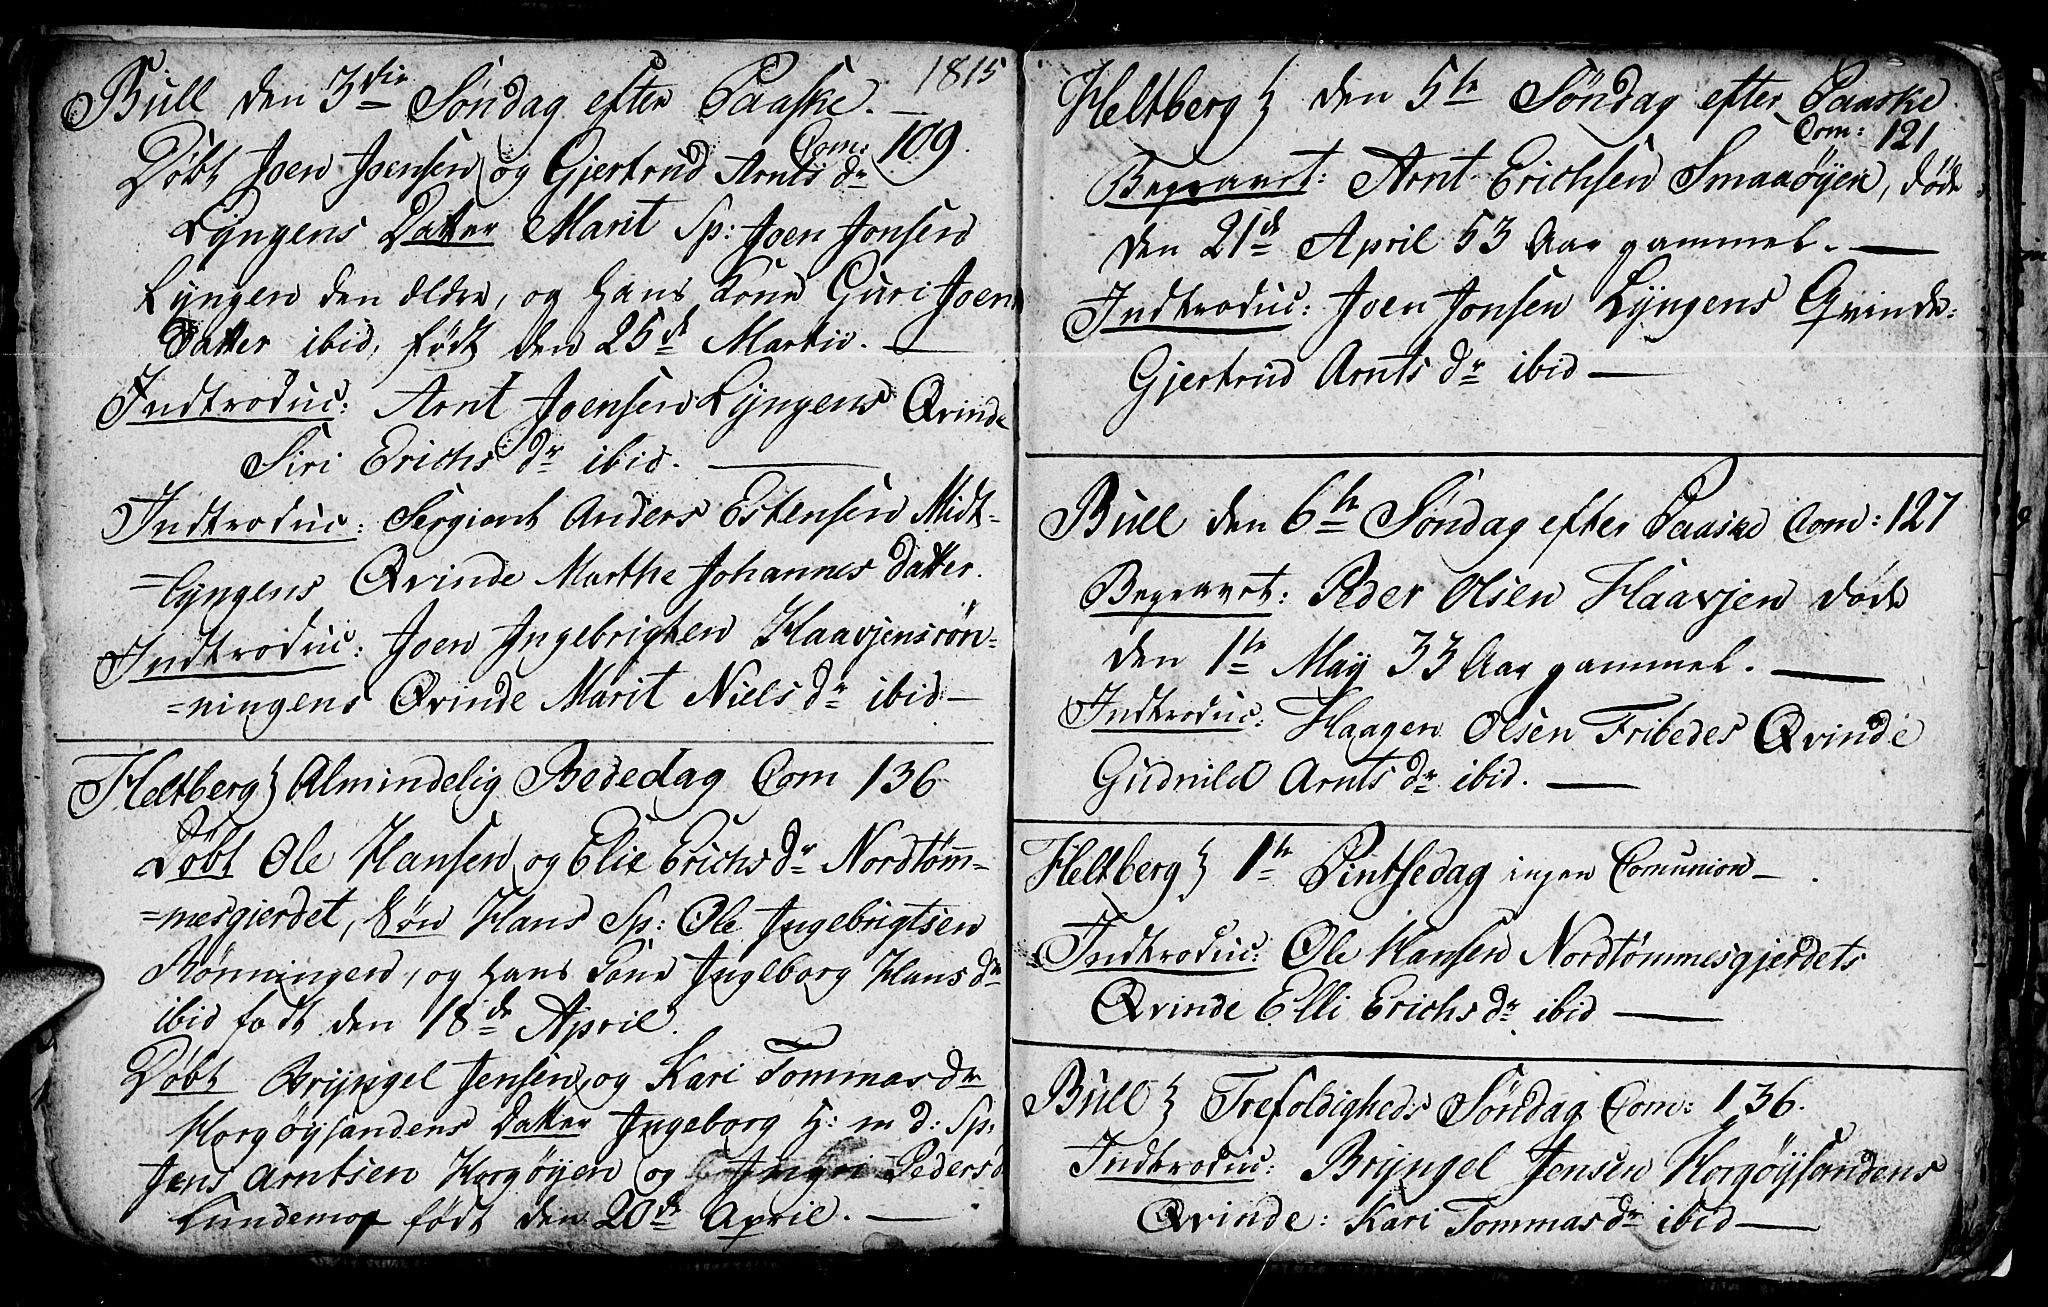 1815
Bull den 3die Søndag efter Paaske.
Com: 109.
Døbt Joen Joensen og Gjertrud Arnts dr
Lÿngens Datter Marit Sp: Joen Jonsen
Lÿngen den ældre, og hans Kone Guri Joens
Datter ibid, født den 25de Martii.
Indtroduc: Arnt Joensen Lÿngens Qvinde
Siri Erichs dr ibid.
Indtroduc: Sergiant Anders Estensen Midt-
=lÿngens Qvinde Marthe Johannes Datter.
Indtroduc: Joen Ingebrigtsen Haavjensrøn-
=ningens Qvinde Marit Niels dr ibid
Heltberg Almindelig Bededag Com 136
Døbt Ole Hansen og Elie Erichs dr Nordtøm-
=mesgjerdet, Søn Hans Sp: Ole Ingebrigtsen
Rønningen, og hans Kone Ingeborg Hans dr
ibid født den 18de April.
Døbt Brÿngel Jensen, og Kari Tommas dr
Horgøÿsandens Datter Ingeborg H: m d: Sp:
Jens Arntsen Horgøÿen og Ingri Peders d
Lundemo født den 20de April.
Heltberg den 5te Søndag efter Paaske
Com: 121
Begravet: Arnt Erichsen Smaaøÿen, døde
den 21de April 53 Aar gammel.
Indtroduc: Joen Jonsen Lÿngens Qvinde:
Gjertrud Arnts dr ibid
Bull den 6te Søndag efter Paaske Com: 127
Begravet: Peder Olsen Haavjen døde
den 1te Maÿ 33 Aar gammel.
Indtroduc: Haagen Olsen Fribedes Qvinde
Gudnild Arnts dr ibid.
Heltberg 1te Pintsedag ingen Comunion
Indtroduc: Ole Hansen Nordtømmesgjerdets
Qvinde Elli Erichs dr ibid
Bull Trefoldigheds Søndag Com: 136.
Indtroduc: Brÿngel Jensen Horgøÿsandens
Qvinde: Kari Tommas dr ibid